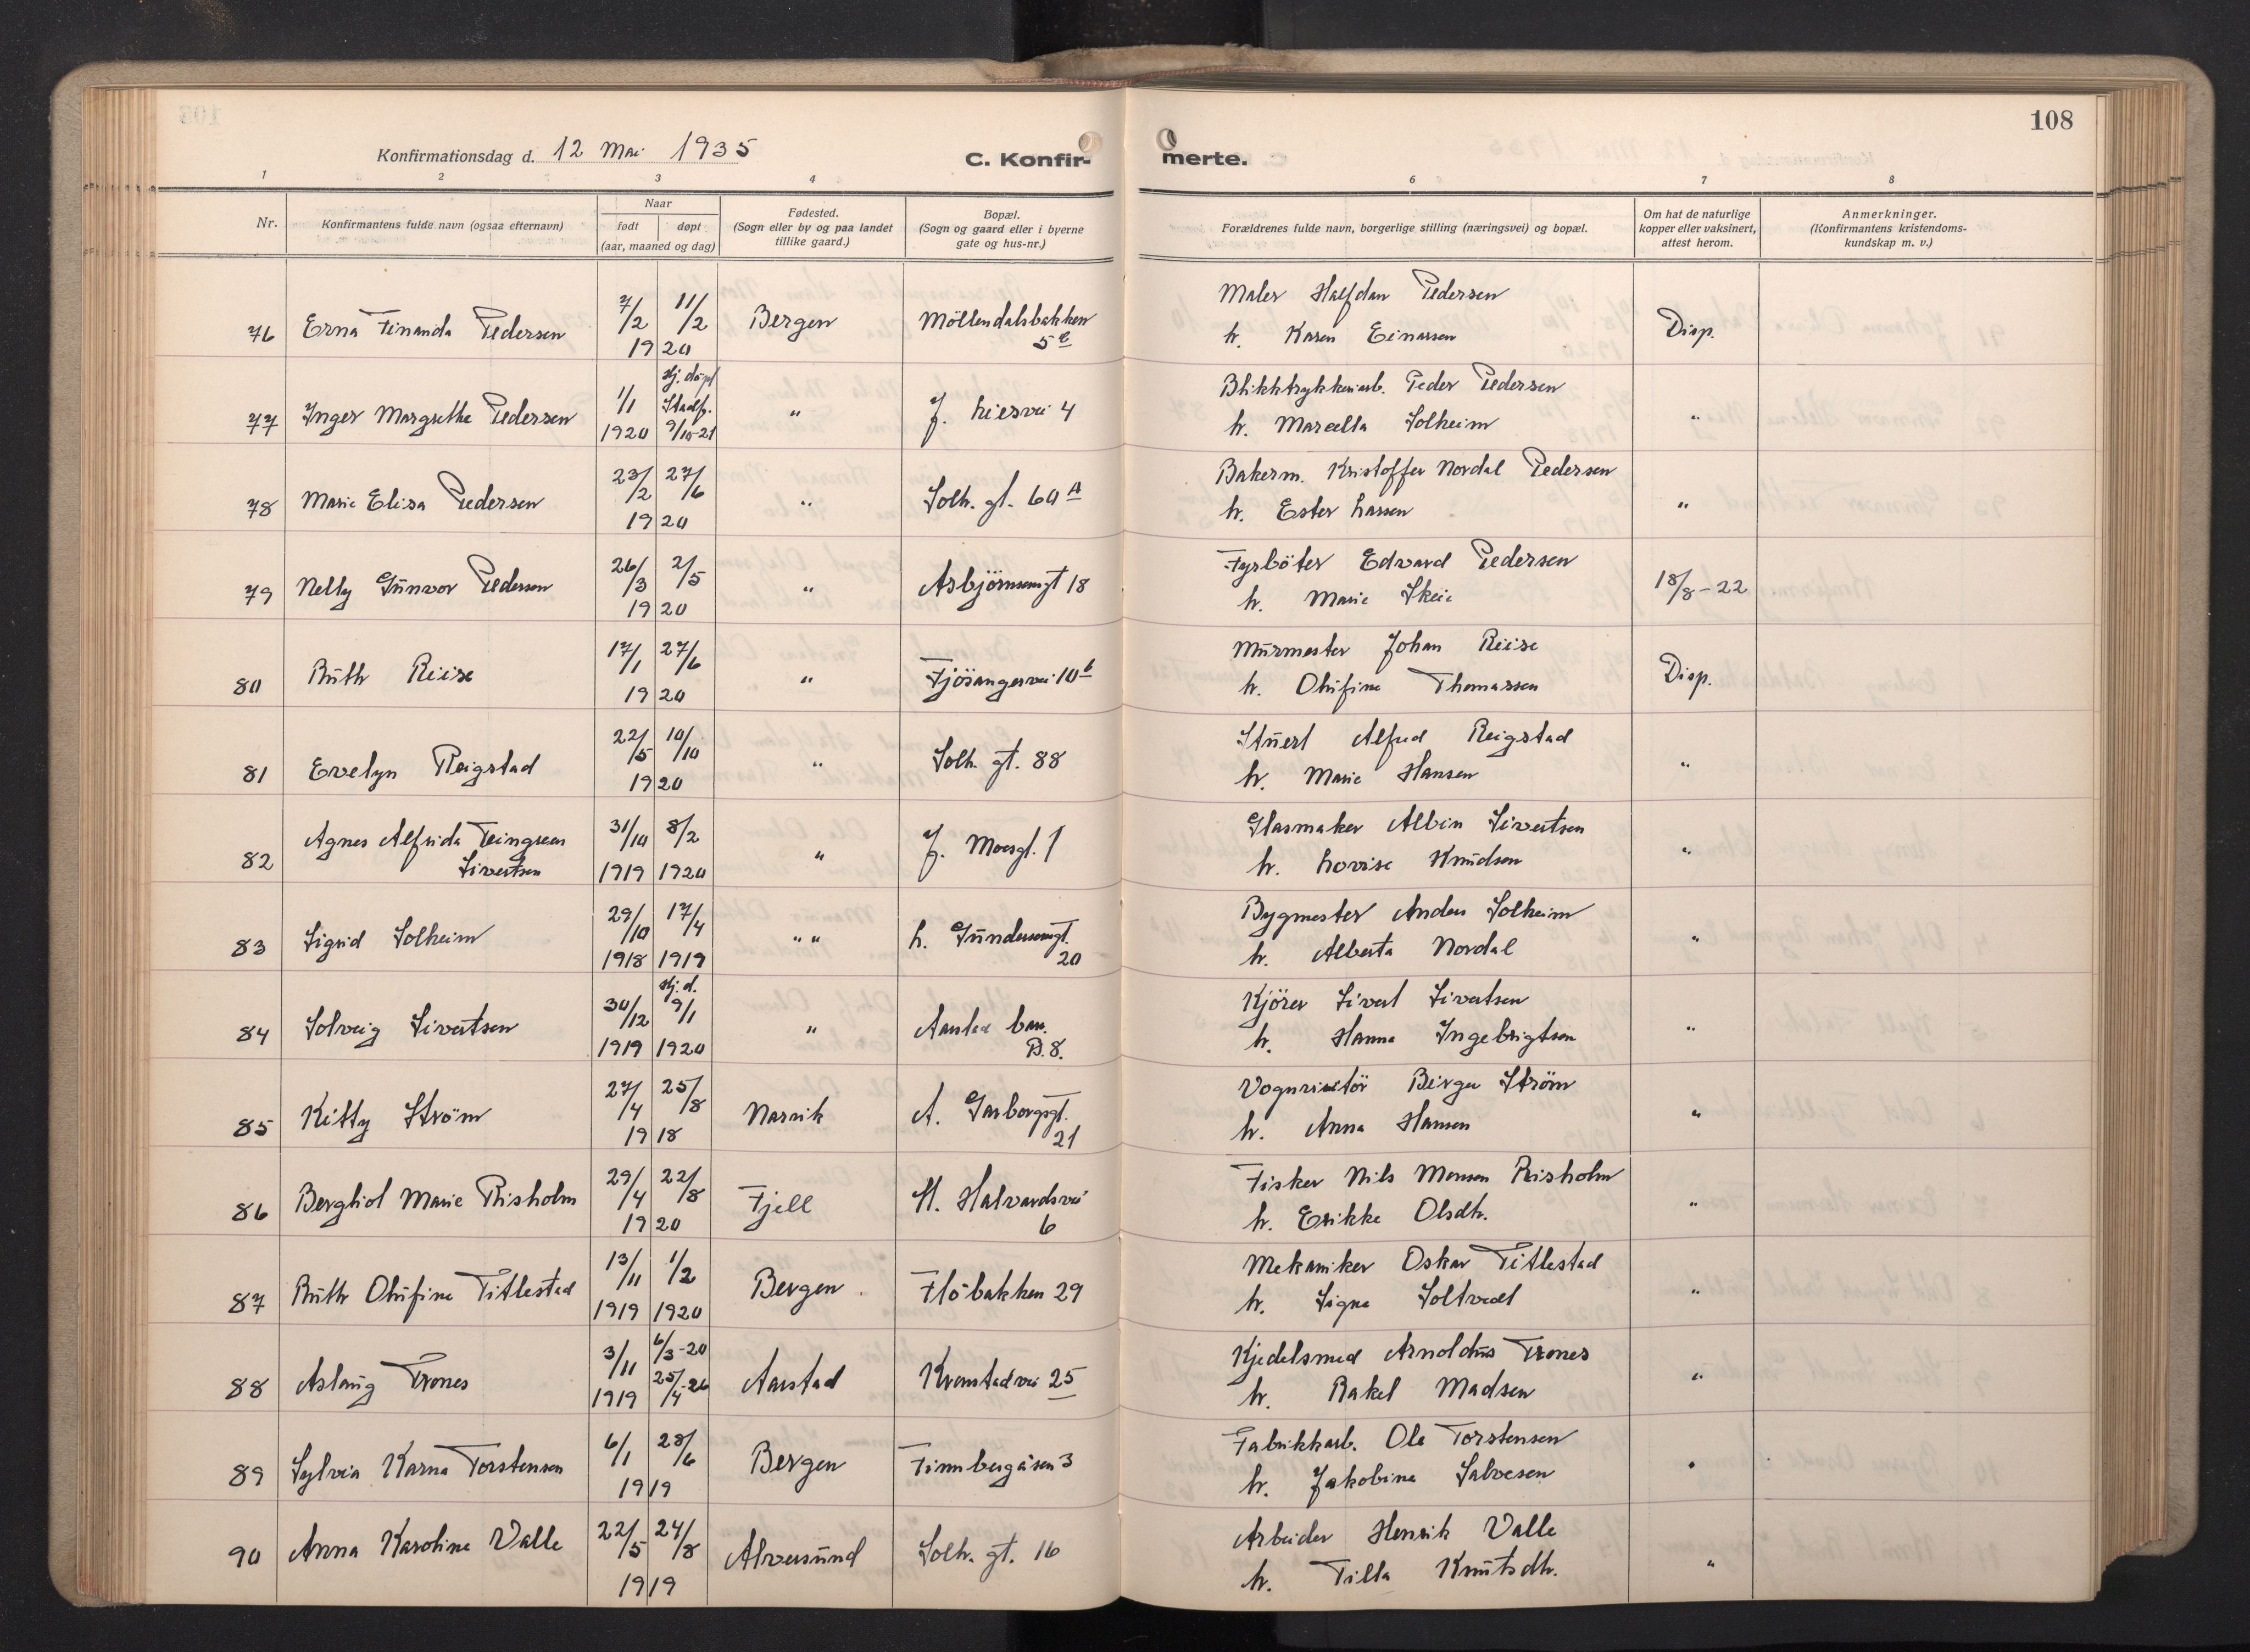 108
Konfirmationsdag d. 12 Mai 1935
C. Konfir- merte.
1 2 3 4 5 6 7 8
Nr.
Konfirmantens fulde navn (ogsaa efternavn)
Naar
født døpt
(aar, maaned og dag)
Fødested.
(Sogn eller by og paa landet
tillike gaard.)
Bopæl.
(Sogn og gaard eller i byerne
gate og hus-nr.)
Forældrenes fulde navn, borgerlige stilling (næringsvei) og bopæl.
Om hat de naturlige
kopper eller vaksinert,
attest herom.
Anmerkninger.
(Konfirmantens kristendoms-
kundskap m. v.)
Maler Halfdan Pedersen
76 Erna Finanda Pedersen 7/2 11/2 Bergen Möllendalsbakken h. Karen Einarsen Disp.
1920
Hj. döpt
Blikktrykkeriarb. Peder Pedersen
77 Inger Margrethe Pedersen 1/1 Stadf. " J. Liesvei 4
1920 9/10-21 h. Marcella Solheim "
Bakerm. Kristoffer Nordal Pedersen
78 Marie Elisa Pedersen 23/2 27/6 " Solh. gt. 60 A
1920 h. Ester Larsen "
Fyrböter Edvard Pedersen
79 Nelly Gunvor Pedersen 26/3 2/5 " Asbjörnsensgt 18 18/8-22
1920 h. Marie Skeie
Murmester Johan Reise
80 Ruth Reise 17/1 27/6 " Fjösangervei 10 b Disp.
1920 h. Olufine Thomassen
Stuert Alfred Reigstad
81 Evelyn Reigstad 22/5 10/10 " Solh. gt. 88 "
1920 h. Marie Hansen
Glasmaker Albin Sivertsen
Agnes Alfrida 31/10 8/2
82 Sivertsen 1919 1920 " J. Moesgt. 1 h. Lovise Knudsen "
Bygmester Anders Solheim
83 Sigrid Solheim 29/10 17/4 " " L. Gundersensgt.
1918 1919 20 h. Alberta Nordal "
Hj. d.
Kjörer Sivert Sivertsen
84 Solveig Sivertsen 30/12 9/1 " Aarstad bar.
1919 1920 B. 8. h. Hanna Ingebrigtsen "
Vognvisitör Birger Ström
85 Kitty Ström 27/4 25/8 Narvik A. Garborgsgt.
1918 21 h. Anna Hansen "
Fisker Nils Monsen Risholm
86 Bergliot Marie Risholm 29/4 22/8 Fjell St. Halvardsvei
1920 6 h. Erikke Olsdtr. "
Mekaniker Oskar Titlestad
87 Ruth Olufine Titlestad 13/11 1/2 Bergen Flöbakken 29
1919 1920 h. Signe Soltvedt "
Kjedelsmed Arnoldus Trones
88 Aslaug Trones 3/11 6/3-20 Aarstad Kronstadvei 25
1919 25/4-26 h. Rakel Madsen "
Fabrikkarb. Ole Torstensen
89 Sylvia Karna Torstensen 6/1 28/6 Bergen Finnbergåsen 3
1919 h. Jakobine Salvesen "
Arbeider Henrik Valle
90 Anna Karoline Valle 22/5 24/8 Alversund Solh. gt. 16
1919 h. Tilla Knutsdtr. "